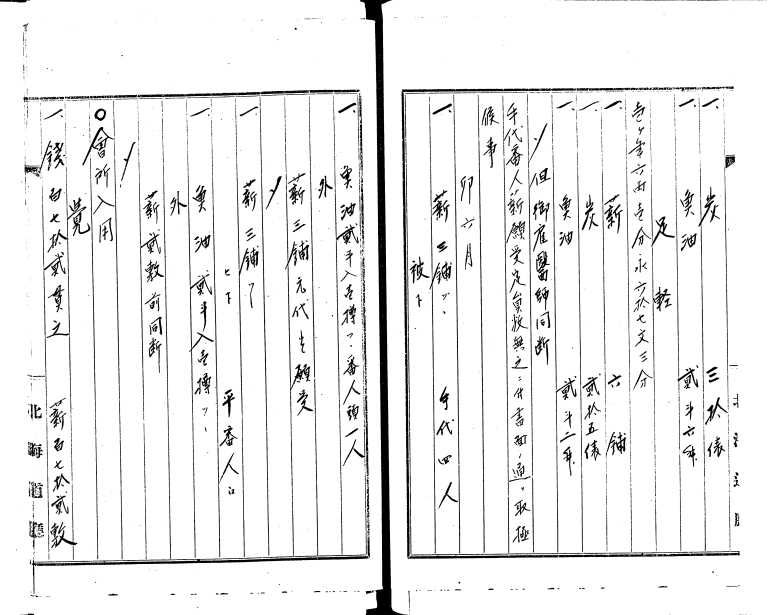 一、炭 三拾俵
一、魚油 貳斗六升
足軽
壱ヶ年六両壱分永六拾七文三分
一、薪 六舗
一、炭 貳拾五俵
一、魚油 貳斗二升
〆但御雇醫師同断
手代番人薪願受定員数無之ニ付書面ノ通リ取極
候事
卯六月
一、薪三舗ツヽ 手代四人
被下
一、魚油貳斗入壱樽ツヽ番人頭一人
外
薪三舗元代ヲ願受
〆
一、薪三舗ツヽ 平番人江
被下
一、魚油貳斗入壱樽ツヽ
外
薪貳敷前同断
〆
○會所入用
覺
一、錢百七拾貳貫文 薪百七拾貳敷
北海道廳